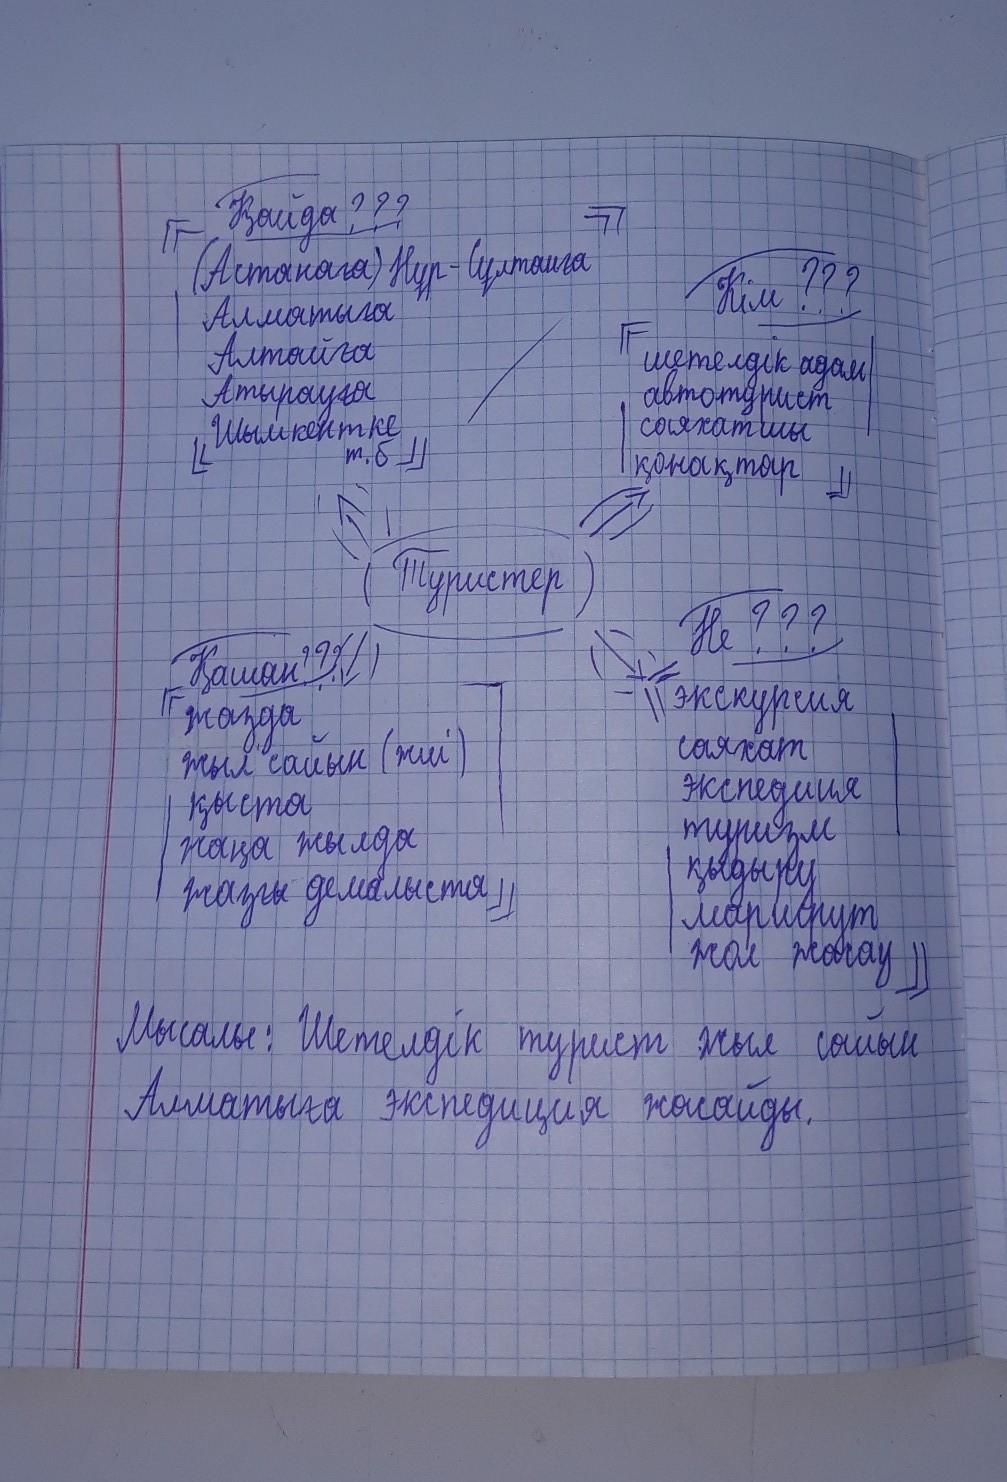 Қайда ???
(Астанаға) Нұр-Сұлтанға
Алматыға
Алтайға
Атырауға
Шымкентке
т.б
Кім ???
шетелдік адам
автотурист
саяхатшы
қонақтар
Туристер
Қашан???
жазда
жыл сайын (жиі)
қыста
жаңа жылда
жазғы демалыста
Не ???
экскурсия
саяхат
экспедиция
туризм
қыдыру
маршрут
жол жасау
Мысалы: Шетелдік турист жыл сайын
Алматыға экспедиция жасайды.